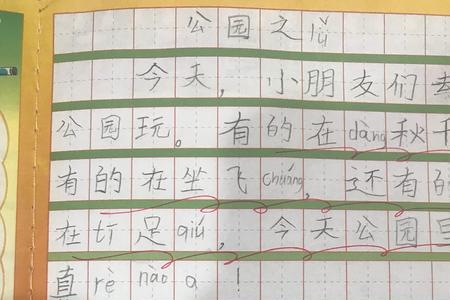 公园之lǚ
今天，小朋友们去
公园玩。有的在dàng秋千
有的在坐飞chuáng，还有的
在打足qiú，今天公园里
直rè nào a！